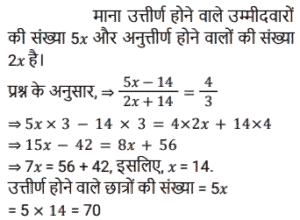 माना उत्तीर्ण होने वाले उम्मीदवारों
की संख्या 5x और अनुत्तीर्ण होने वालों की संख्या
2x है।
प्रश्न के अनुसार, ⇒ (5x − 14)/(2x + 14) = 4/3
⇒ 5x × 3 − 14 × 3 = 4×2x + 14×4
⇒ 15x − 42 = 8x + 56
⇒ 7x = 56 + 42, इसलिए, x = 14.
उत्तीर्ण होने वाले छात्रों की संख्या = 5x
= 5 × 14 = 70